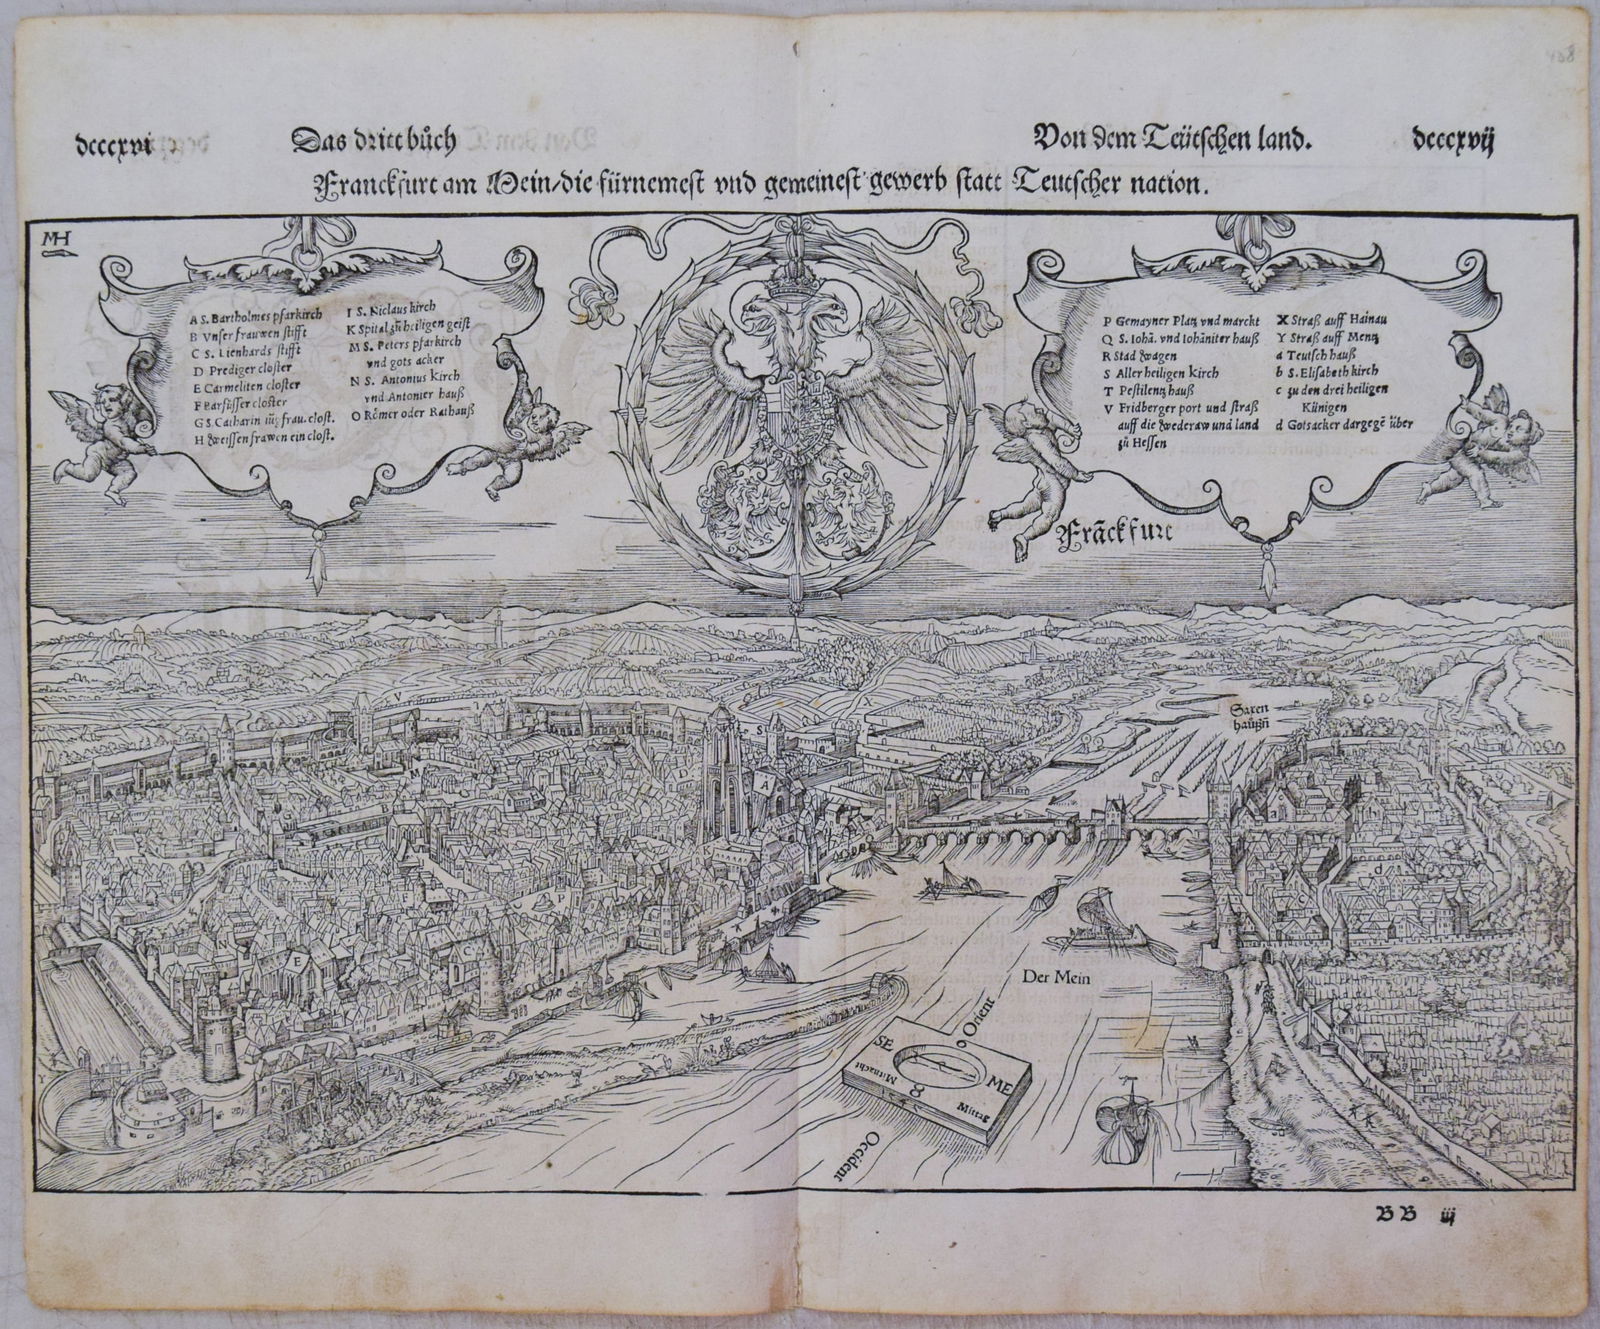 dcccxvi Das dritt bůch Von dem Teütschen land. dcccxvij
Franckfurt am Mein/die fürnemest vnd gemeinest gewerb statt Teutscher nation.
MH
A S. Bartholmes pfarkirch
B Vnser frauwen stifft
C S. Lienhards stifft
D Prediger closter
E Carmeliten closter
F Barfüsser closter
G S. Catharin iũ frau. clost.
H Weissen frawen ein clost.
I S. Niclaus kirch
K Spital zů heiligen geist
M S. Peters pfarkirch
vnd gots acker
N S. Antonius kirch
vnd Antonier hauß
O Rômer oder Rathauß
P Gemayner Platz vnd marckt
Q S. Iohã. vnd Iohãniter hauß
R Stad wagen
S Aller heiligen kirch
T Pestilentz hauß
V Fridberger port vnd straß
auff die wederaw vnd land
zů Hessen
X Straß auff Hainau
Y Straß auff Mentz
a Teutsch hauß
b S. Elisabeth kirch
c zu den drei heiligen
Künigen
d Gotsacker dargegẽ über
Frãckfurt
Saxen
haußn
V
X
S
M
D
A
G
F
P
d
c
N
E
C
Y
Der Mein
Orient
SE
ME
Mitnacht
Mittag
Occident
BB iij